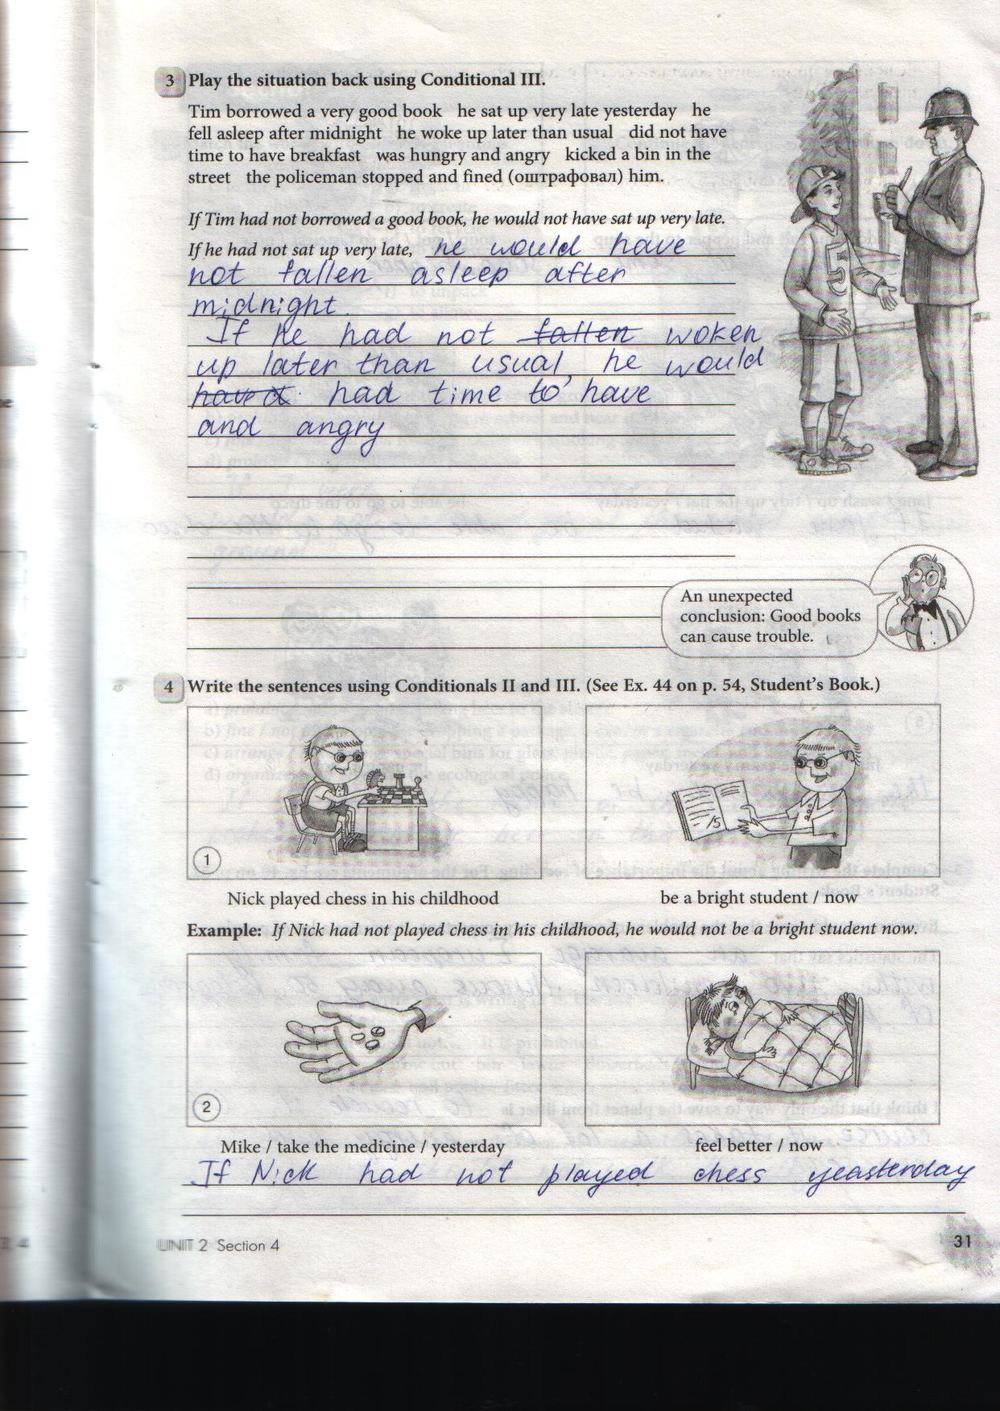 3 Play the situation back using Conditional III.
Tim borrowed a very good book he sat up very late yesterday he
fell asleep after midnight he woke up later than usual did not have
time to have breakfast was hungry and angry kicked a bin in the
street the policeman stopped and fined (оштрафовал) him.
If Tim had not borrowed a good book, he would not have sat up very late.
If he had not sat up very late, he would have
not fallen asleep after
midnight
If he had not fallen woken
up later than usual, he would
had time to have
and angry
An unexpected
conclusion: Good books
can cause trouble.
4 Write the sentences using Conditionals II and III. (See Ex. 44 on p. 54, Student's Book.)
1
Nick played chess in his childhood
be a bright student / now
Example: If Nick had not played chess in his childhood, he would not be a bright student now.
2
Mike / take the medicine / yesterday
feel better / now
If Nick had not played chess yeasterday
UNIT 2 Section 4
31